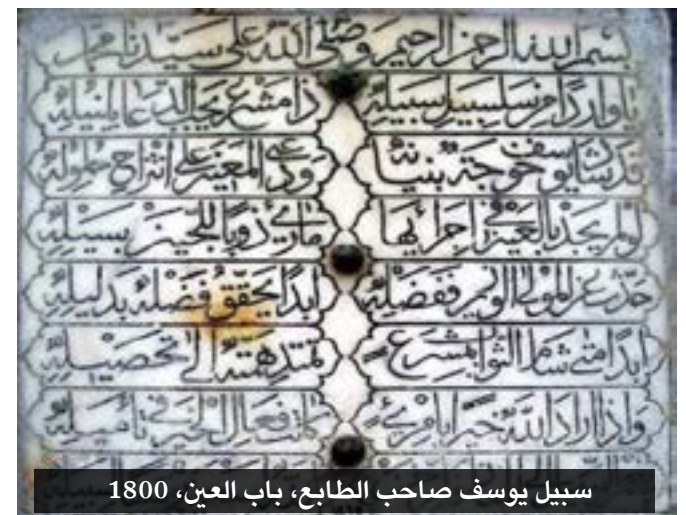 بسم الله الرحمن الرحيم وصلى الله على سيدنا محمد
يا واردا من سلسبيل سبيله ذا مشرع يجب الدعا لمنيله
قد شاد يوسف خوجة بنيانه
لو لم يجد بالعين في إجرائها للحين بسيله
حدث عن المولى الوزير ففضله أبدا يحقق فضله بدليله
أبدا متى شام الثواب بمشرع تمتد همته إلى تحصيله
وإذا أراد الله خيرا بامرئ كانت فعال الخير في تأميله
سبيل يوسف صاحب الطابع، باب العين، 1800